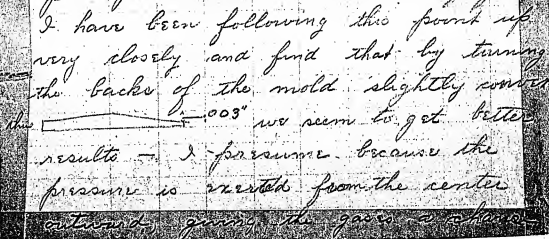 I have been following this point up
very closely and find that by turning
the backs of the mold slightly convex
this .003" we seem to get better
results — I presume because the
pressure is exerted from the center
outward, giving the gases a chance